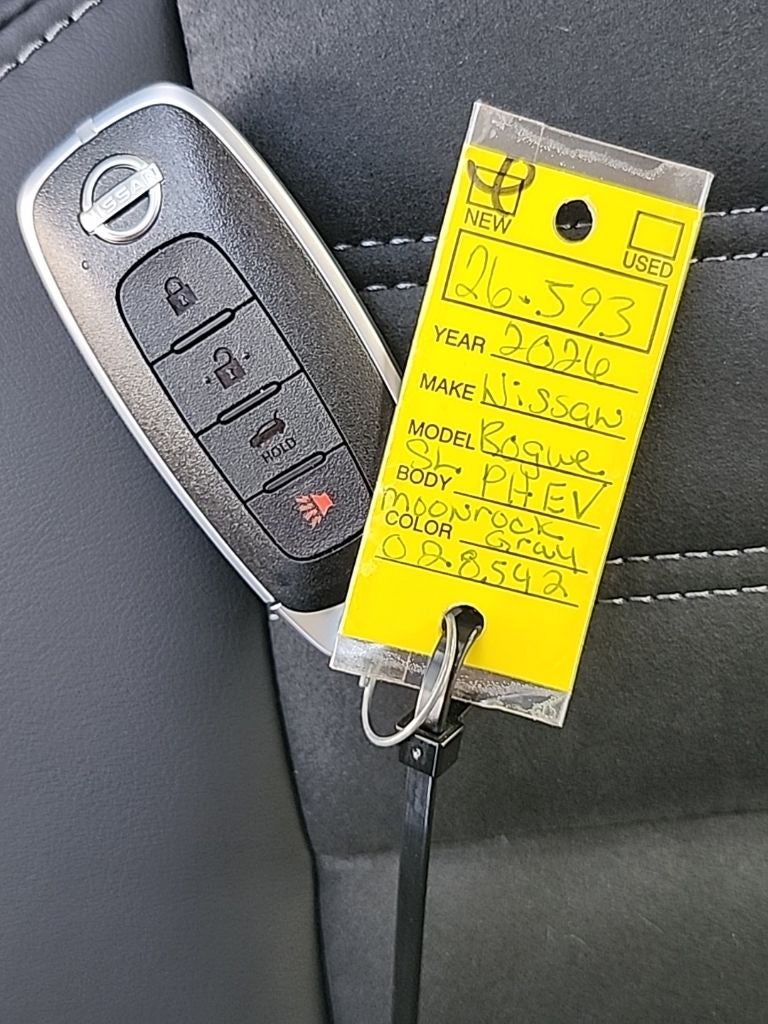 NISSAN
HOLD
NEW
USED
26.593
YEAR 2026
MAKE Nissan
MODEL Rogue
SL
BODY PHEV
moonrock
COLOR Gray
028542